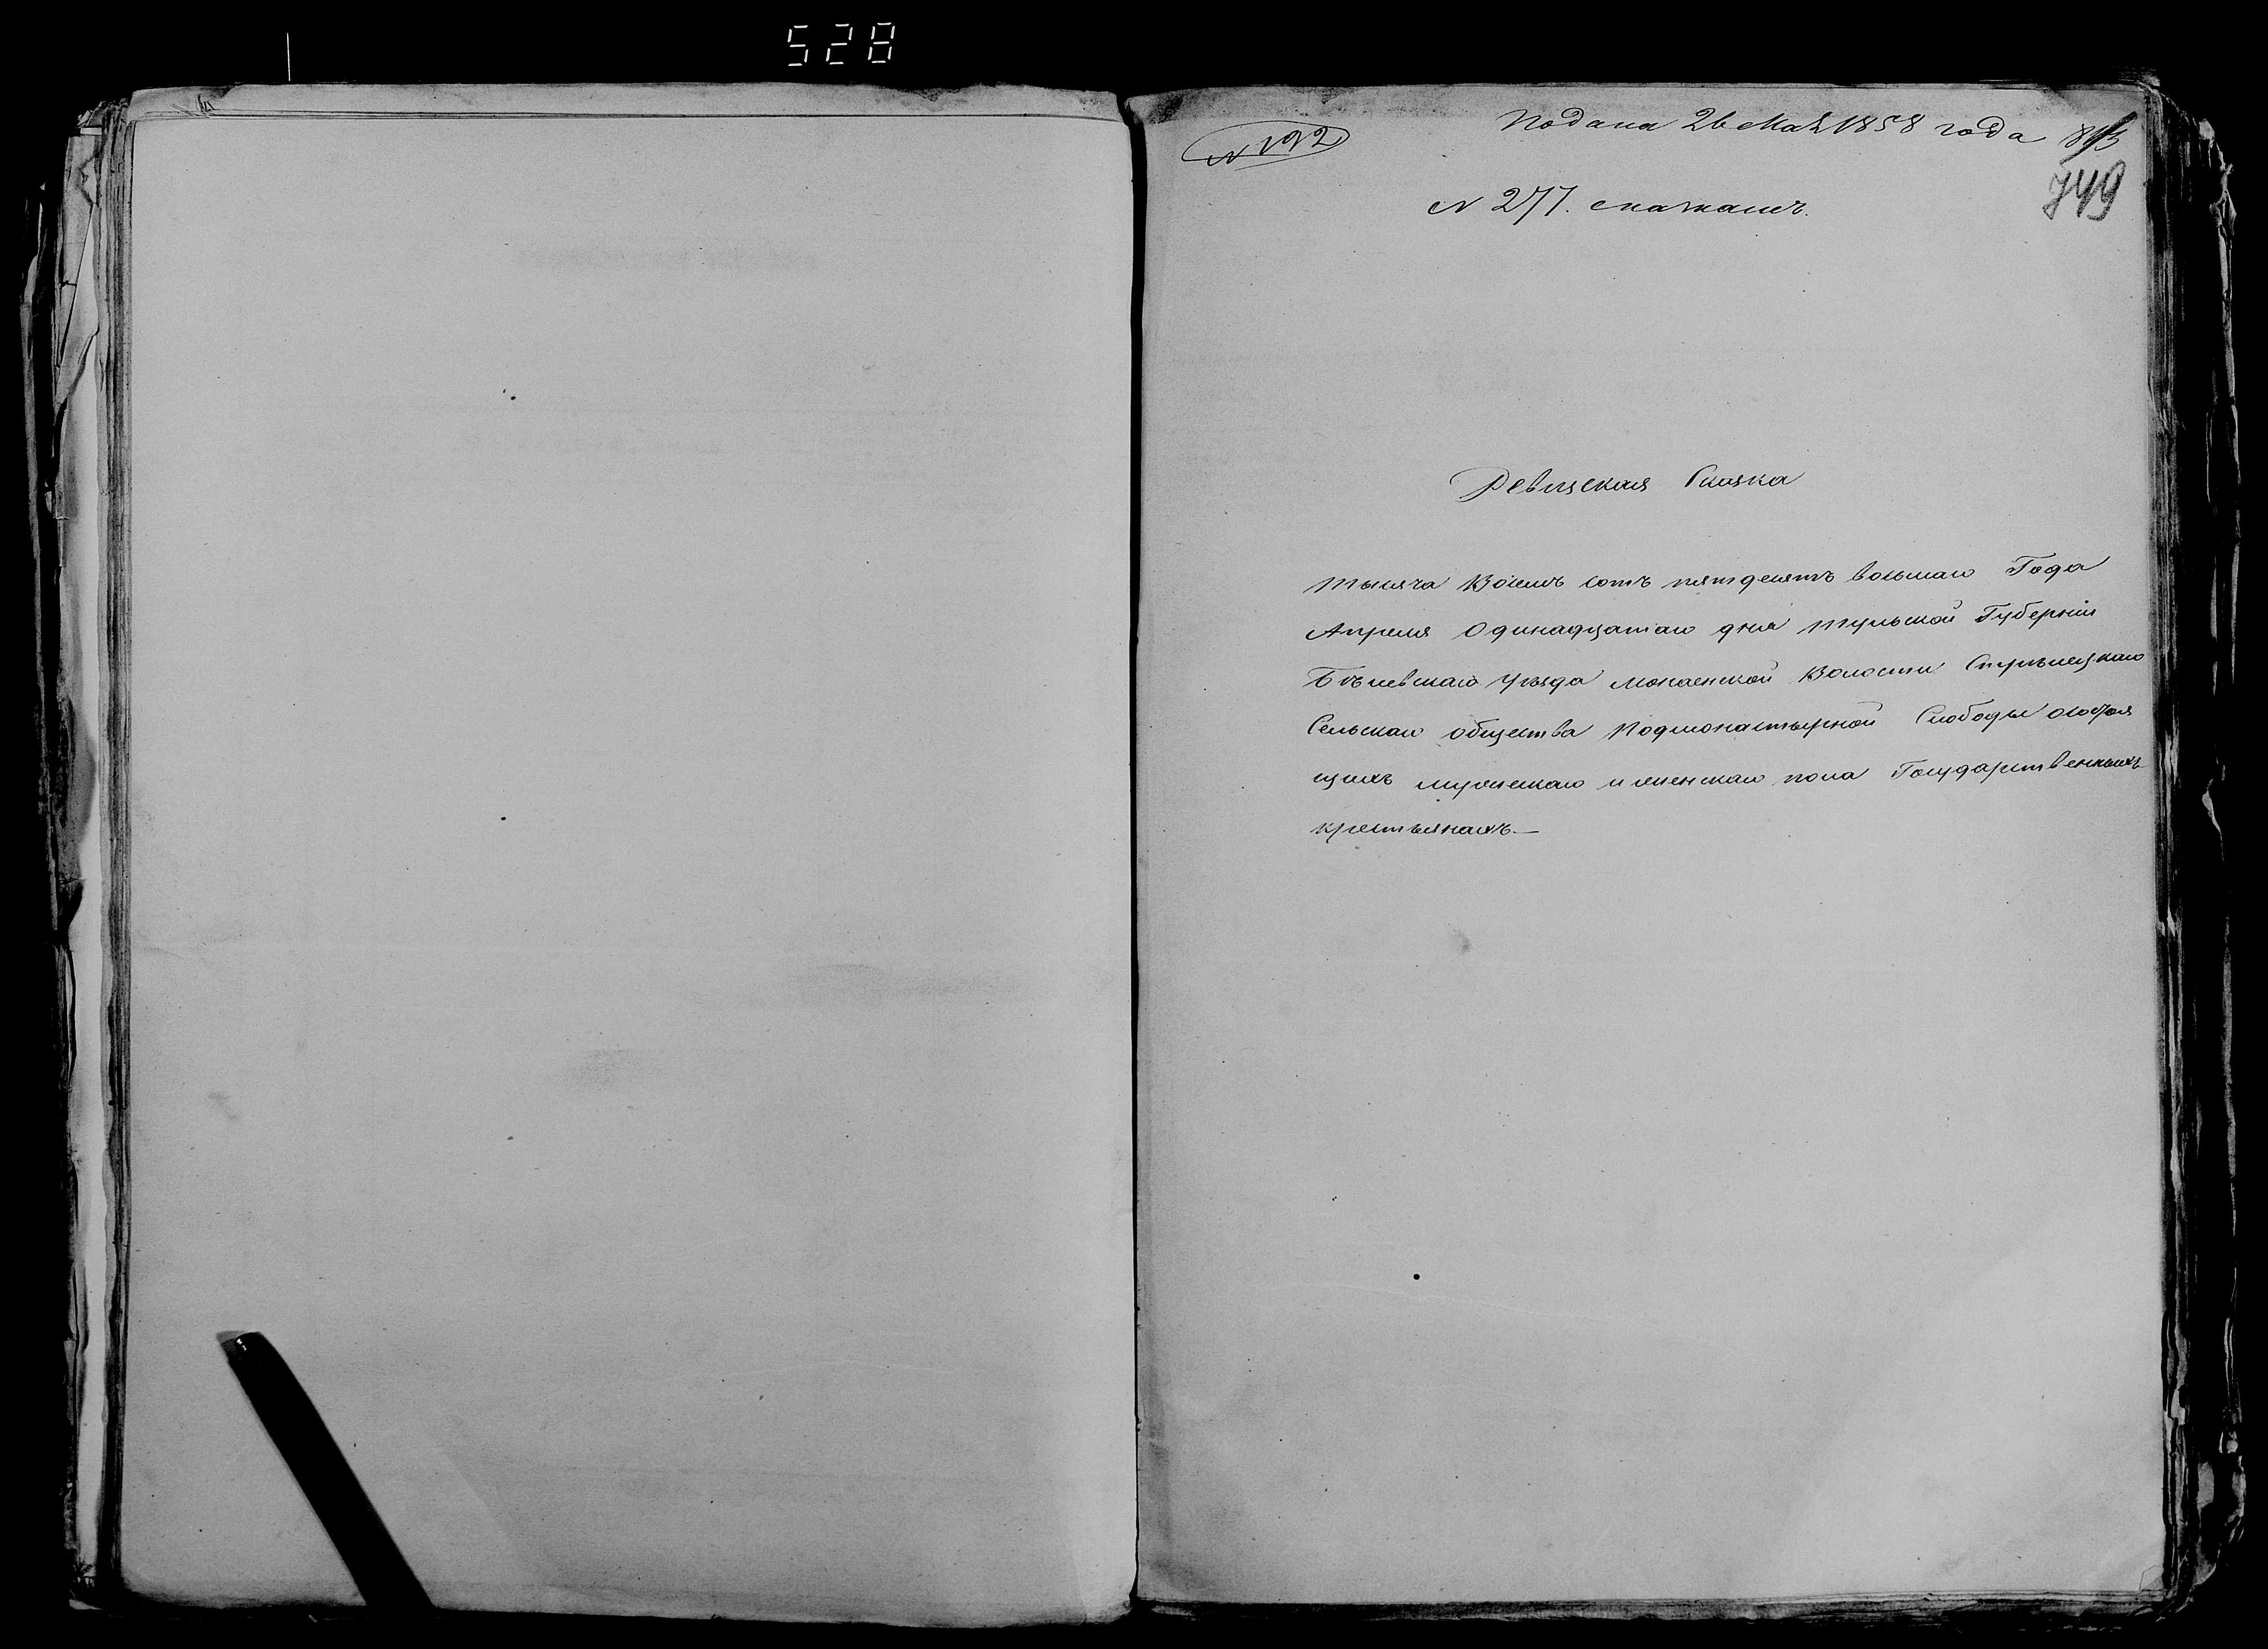 528
N 192
Подана 26 Мая 1858 года
749
N 277.
Ревизская Сказка
тысяча Восемь сотъ пятдесятъ восьмаго Года
Апреля Одинадцатаго дня Тульской Губерніи
Бѣлевскаго Уѣзда Монаенской Волости Стрѣлецкаго
Сельскаго общества Подмонастырной Слободы о состоя
щихъ мужескаго и женскаго пола Государственныхъ
крестьянахъ.—